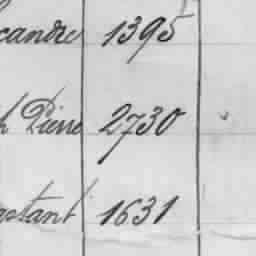 candre 1395
h Pierre 2730
nstant 1631